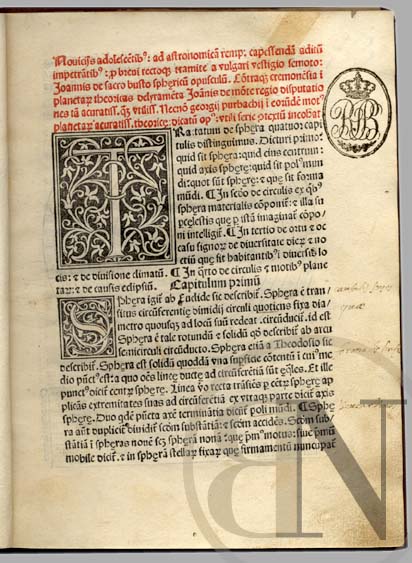 Nouicijs adolescẽtibꝰ: ad astronomicã remp. capessendã aditũ
impetrãtibꝰ: ꝓ breui rectoqꝫ tramite a vulgari vestigio semoto:
Joannis de sacro busto sphęricũ opusculũ. Cõtraqꝫ cremonẽsia i
planetaꝝ theoricas delyramẽta Joãnis de mõte regio disputatio
nes tã accuratiss. qꝫ vtiliss. Necnõ georgij purbachij i eorũdẽ motꝰ
planetaꝝ accuratiss. theoricę: dicatũ opꝰ: vtili serie ↄ̃textũ incohat
TRactatum de sphęra quatuor capi
tulis distinguimus. Dicturi primo:
quid sit sphęra: quid eius centrum:
quid axis sphęrę: quid sit polꝰ mun
di: quot sũt sphęrę: ⁊ que sit forma
mũdi. ¶ In scđo de circulis ex qͥbꝰ
sphęra materialis cõponit̃: ⁊ illa su
pcęlestis que ꝑ istã imaginat̃ cõpo
ni intelligit̃. ¶ In tertio de ortu ⁊ oc
casu signoꝝ de diuersitate dieꝝ ⁊ no
ctiũ que fit habitantibꝰ i diuersis lo
cis: ⁊ de diuisione climatũ. ¶ In qͣrto de circulis ⁊ motibꝰ plane
taꝝ: ⁊ de causis eclipsiũ. Capitulum primũ
SPhęra igit̃ ab Euclide sic describit̃. Sphęra ẽ tran
situs circũferentię dimidij circuli quotiens fixa dia/
metro quousqꝫ ad locũ suũ redeat. circũducit̃. id est
Sphęra ẽ tale rotundũ ⁊ solidũ qđ describit̃ ab arcu
semicirculi circũducto. Sphęra etiã a Theodosio sic
describit̃. Sphęra ẽ solidũ quoddã vna supficie cõtentũ i cuiꝰ me
dio pũctꝰ est: a quo oẽs linee ductę ad circũferẽtiã sũt ęqͣles. Et ille
punctꝰ dicit̃ centꝝ sphęrę. Linea vꝰo recta trãsiẽs ꝑ cẽtꝝ sphęrę ap
plicans extremitates suas ad circũferẽtiã ex vtraqꝫ parte dicit̃ axis
sphęrę. Duo qͥdẽ pũcta axẽ terminãtia dicũt̃ poli mũdi. ¶ Sphę
ra aũt dupliciť diuidit̃ scđm substãtiã: ⁊ scđm accidẽs. Scđm sub/
stãtiã i sphęras nouẽ scꝫ sphęra nonã: que pͥmꝰ motus: siue pͥmũ
mobile dicit̃. ⁊ in sphęrã stellaꝝ fixaꝝ que firmamentũ nuncupat̃
BN